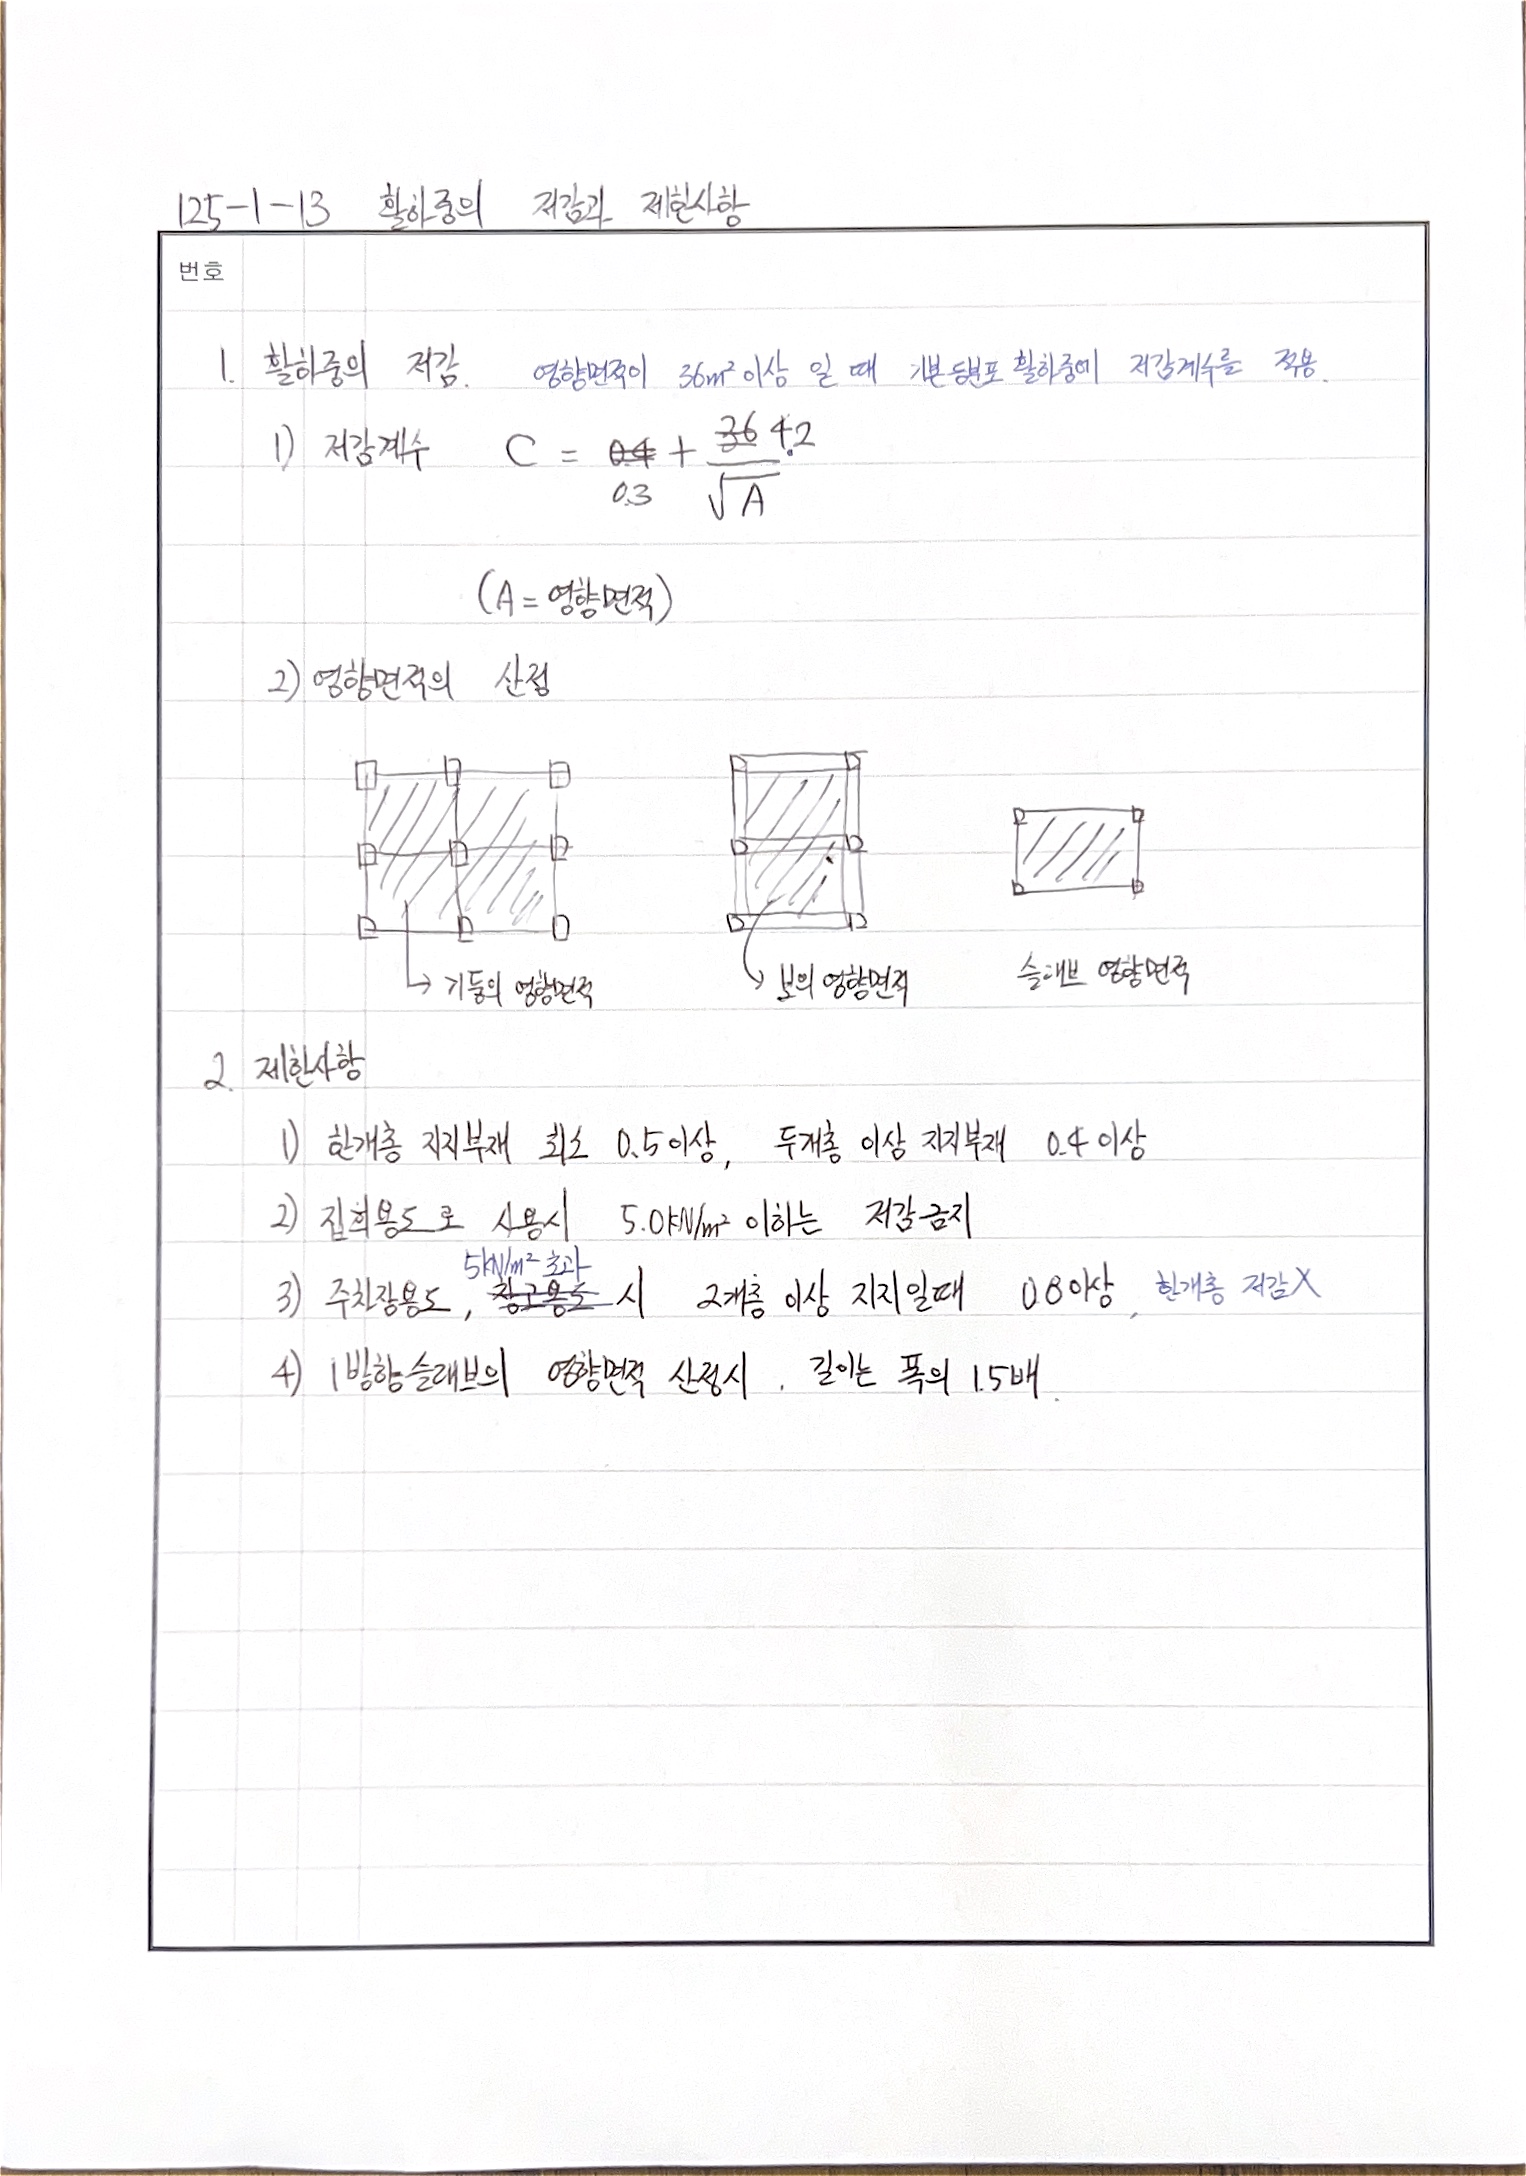 125-1-13 활하중의 저감과 제한사항
번호
1. 활하중의 저감. 영향면적이 36m² 이상 일 때 기본등분포 활하중에 저감계수를 적용.
1) 저감계수 C = 0.4 + 36 4.2
0.3 √A
(A = 영향면적)
2) 영향면적의 산정
→ 기둥의 영향면적 → 보의 영향면적 슬래브 영향면적
2. 제한사항
1) 한개층 지지부재 최소 0.5이상, 두개층 이상 지지부재 0.4 이상
2) 집회용도로 사용시 5.0kN/m² 이하는 저감금지
5kN/m² 초과
3) 주차장용도, 창고용도 시 2개층 이상 지지일때 0.8이상, 한개층 저감X
4) 1방향슬래브의 영향면적 산정시. 길이는 폭의 1.5배.